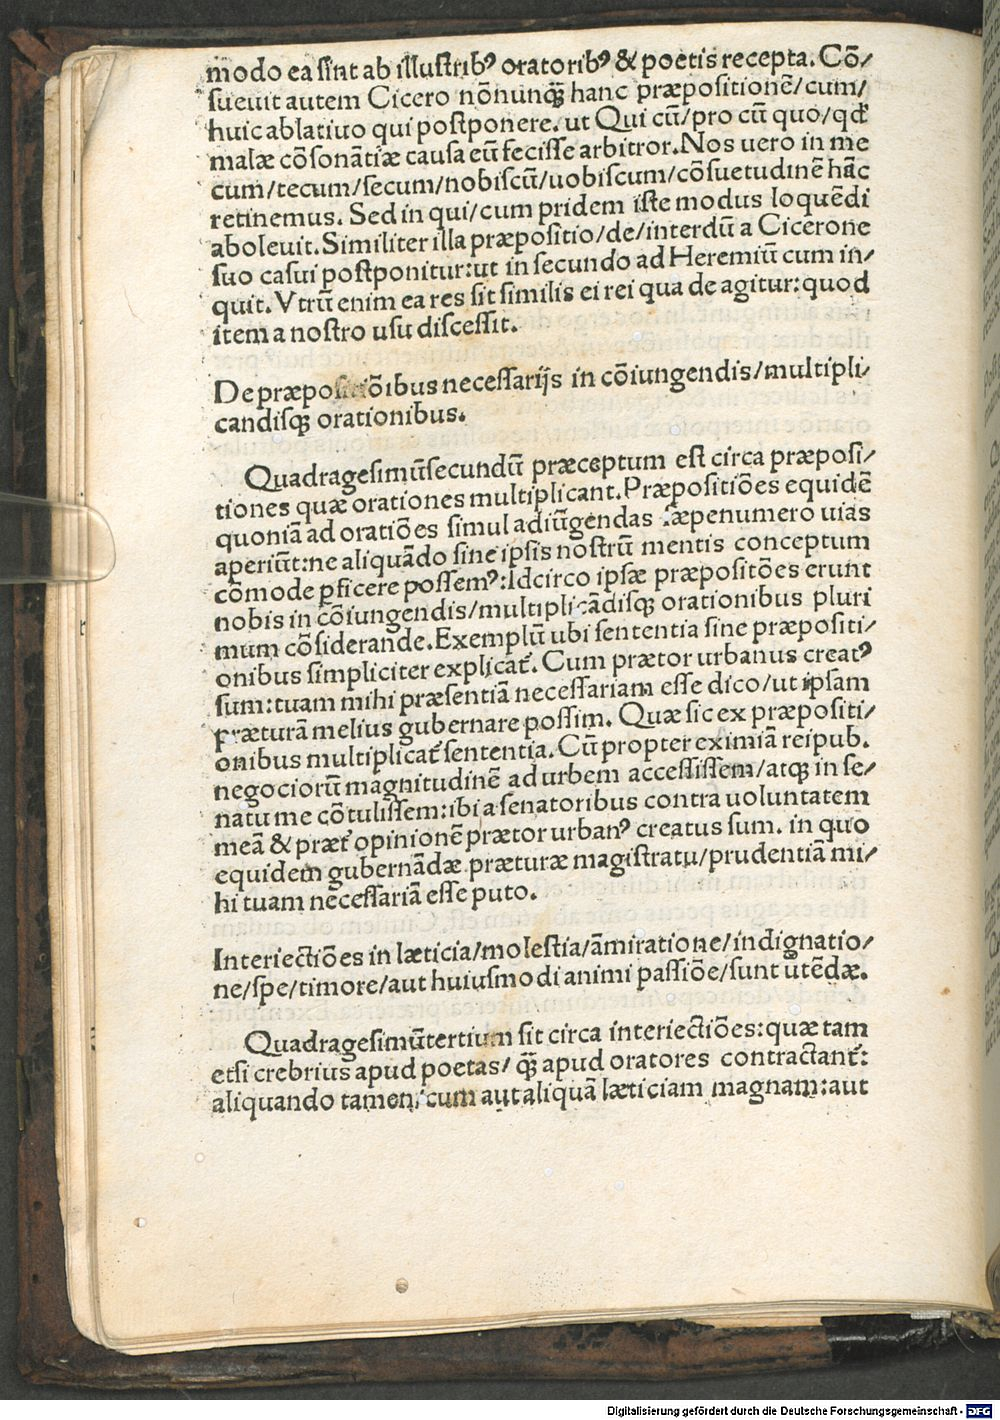 modo ea ſint ab illuſtribꝰ oratoribꝰ & poetis recepta. Cō/
ſueuit autem Cicero nōnunq̃ hanc præpoſitionē/cum/
huic ablatiuo qui poſtponere. ut Qui cū/pro cū quo/qđ
malæ cōſonātiæ cauſa eū feciſſe arbitror. Nos uero in me
cum/tecum/ſecum/nobiſcū/uobiſcum/cōſuetudinē hāc
retinemus. Sed in qui/cum pridem iſte modus loquēdi
aboleuit. Similiter illa præpoſitio/de/interdū a Cicerone
ſuo caſui poſtponitur: ut in ſecundo ad Heremiū cum in/
quit. Vtrū enim ea res ſit ſimilis ei rei qua de agitur: quod
item a noſtro uſu diſceſſit.
De præpoſitiōibus neceſſarijs in cōiungendis/multipli/
candiſq; orationibus.
Quadrageſimūſecundū præceptum eſt circa præpoſi/
tiones quæ orationes multiplicant. Præpoſitiōes equidē
quoniā ad oratiōes ſimul adiūgendas ſæpenumero uias
aperiūt: ne aliquādo ſine ipſis noſtrū mentis conceptum
cōmode ꝑficere poſſemꝰ: Idcirco ipſæ præpoſitōes erunt
nobis in cōiungendis/multiplicādiſq; orationibus pluri
mum cōſiderande. Exemplū ubi ſententia ſine præpoſiti/
onibus ſimpliciter explicat̃. Cum prætor urbanus creatꝰ
ſum: tuam mihi præſentiā neceſſariam eſſe dico/ut ipſam
præturā melius gubernare poſſim. Quæ ſic ex præpoſiti/
onibus multiplicat̃ ſententia. Cū propter eximiā reipub.
negociorū magnitudinē ad urbem acceſſiſſem/atq; in ſe/
natu me cōtuliſſem: ibi a ſenatoribus contra uoluntatem
meā & præt̃ opinionē prætor urbanꝰ creatus ſum. in quo
equidem gubernādæ præturæ magiſtratu/prudentiā mi/
hi tuam neceſſariā eſſe puto.
Interiectiōes in læticia/moleſtia/āmiratione/indignatio/
ne/ſpe/timore/aut huiuſmodi animi paſſiōe/ſunt utēdæ.
Quadrageſimūtertium ſit circa interiectiōes: quæ tam
etſi crebrius apud poetas/ q̃ apud oratores contractant̃:
aliquando tamen, cum aut aliquā læticiam magnam: aut
Digitalisierung gefördert durch die Deutsche Forschungsgemeinschaft - DFG